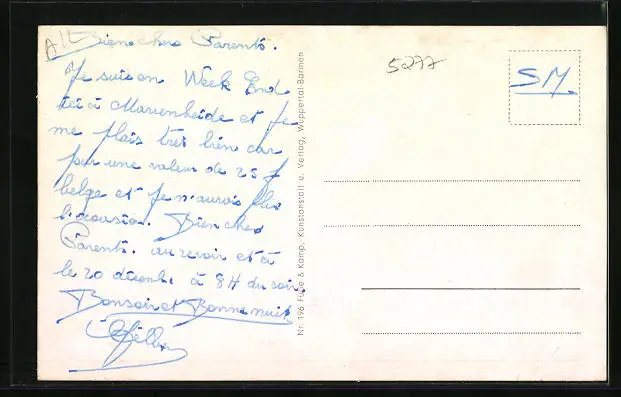 All
Bien chers Parents.
Je suis en Week End
ici à Marienheide et je
me plais très bien car
pour une valeur de 25 f
belge et je n'aurais plus
l'occasion. Bien chers
Parents. au revoir et à
le 20 décemb. à 8H du soir
Bonsoir et Bonne nuit
5277
S.M.
Nr. 196 Fülle & Kamp, Kunstanstalt u. Verlag, Wuppertal-Barmen